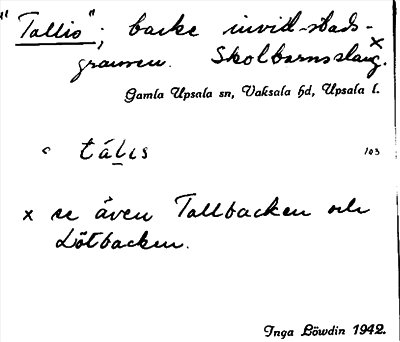 "Tallis"; backe invid stads-
gränsen. Skolbarnsslang.
x
Gamla Upsala sn, Vaksala hd, Upsala l.
c tálıs 103
x se även Tallbacken och
Lötbacken.
Inga Löwdin 1942.